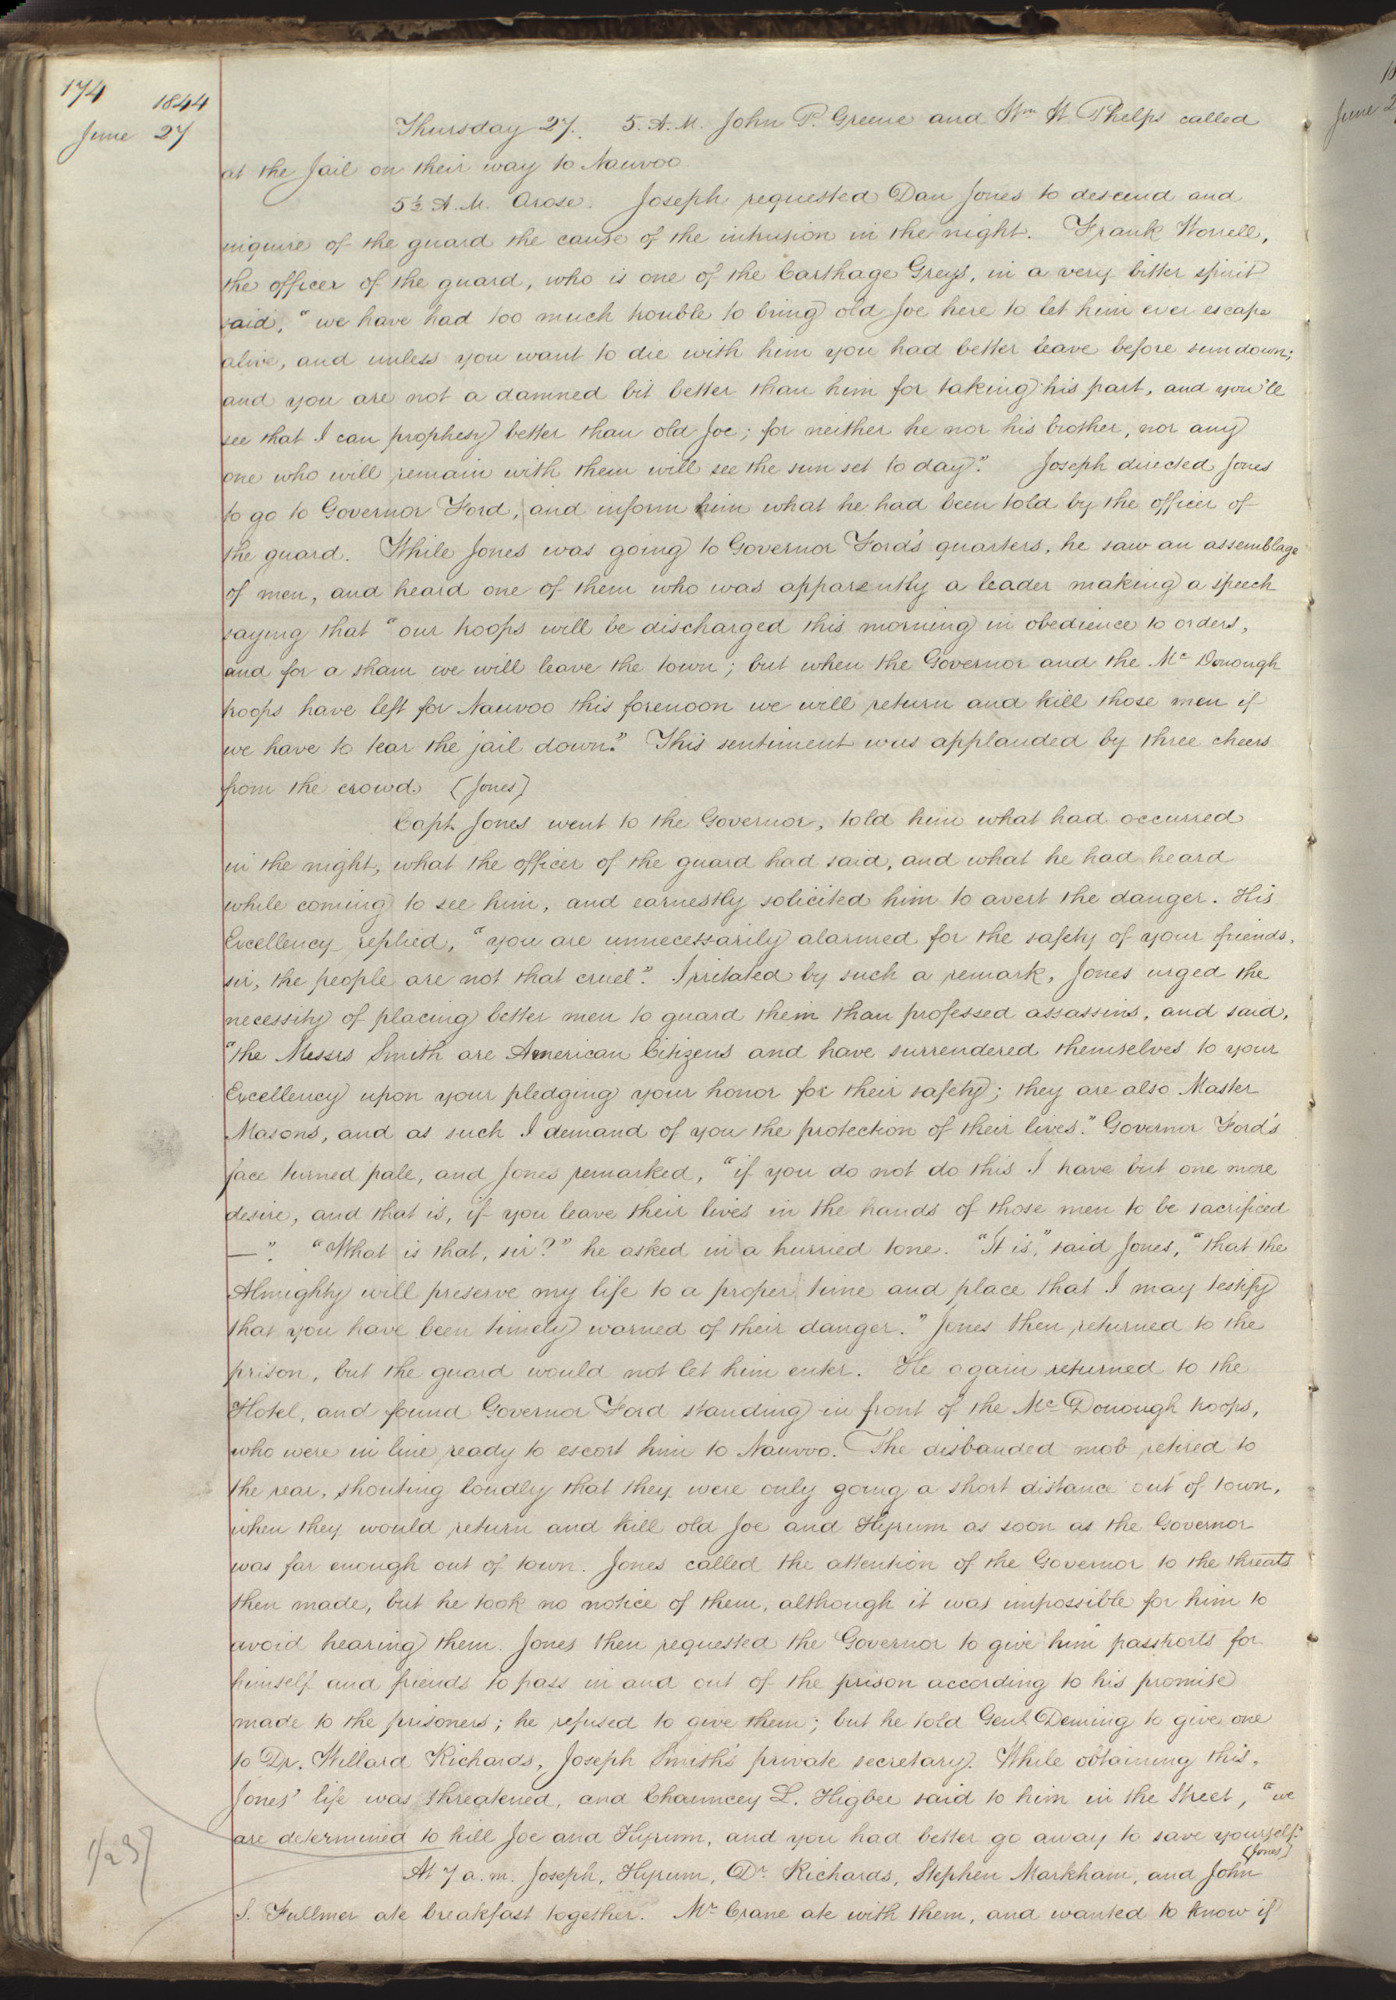 174
1844
June 27
Thursday 27. 5. A. M. John P. Greene and Wm W Phelps called
at the Jail on their way to Nauvoo.
5½ A. M. Arose. Joseph requested Dan Jones to descend and
inquire of the guard the cause of the intrusion in the night. Frank Worrell,
the officer of the guard, who is one of the Carthage Greys, in a very bitter spirit
said, "we have had too much trouble to bring old Joe here to let him ever escape
alive, and unless you want to die with him you had better leave before sundown;
and you are not a damned bit better than him for taking his part, and you'll
see that I can prophesy better than old Joe; for neither he nor his brother, nor any
one who will remain with them will see the sun set to day." Joseph directed Jones
to go to Governor Ford, and inform him what he had been told by the officer of
the guard. While Jones was going to Governor Ford's quarters, he saw an assemblage
of men, and heard one of them who was apparently a leader making a speech
saying that "our troops will be discharged this morning in obedience to orders,
and for a sham we will leave the town; but when the Governor and the Mc Donough
troops have left for Nauvoo this forenoon we will return and kill those men if
we have to tear the jail down." This sentiment was applauded by three cheers
from the crowd. [Jones]
Capt. Jones went to the Governor, told him what had occurred
in the night, what the officer of the guard had said, and what he had heard
while coming to see him, and earnestly solicited him to avert the danger. His
Excellency replied, "you are unnecessarily alarmed for the safety of your friends,
sir, the people are not that cruel." Irritated by such a remark, Jones urged the
necessity of placing better men to guard them than professed assassins, and said,
"the Messrs Smith are American Citizens and have surrendered themselves to your
Excellency upon your pledging your honor for their safety; they are also Master
Masons, and as such I demand of you the protection of their lives." Governor Ford's
face turned pale, and Jones remarked, "if you do not do this I have but one more
desire, and that is, if you leave their lives in the hands of those men to be sacrificed
—". "What is that, sir?" he asked in a hurried tone. "It is," said Jones, "that the
Almighty will preserve my life to a proper time and place that I may testify
that you have been timely warned of their danger." Jones then returned to the
prison, but the guard would not let him enter. He again returned to the
Hotel, and found Governor Ford standing in front of the Mc Donough troops,
who were in line ready to escort him to Nauvoo. The disbanded mob retired to
the rear, shouting loudly that they were only going a short distance out of town,
when they would return and kill old Joe and Hyrum as soon as the Governor
was far enough out of town. Jones called the attention of the Governor to the threats
then made, but he took no notice of them, although it was impossible for him to
avoid hearing them. Jones then requested the Governor to give him passports for
himself and friends to pass in and out of the prison according to his promise
made to the prisoners; he refused to give them; but he told Genl. Deming to give one
to Dr. Willard Richards, Joseph Smith's private secretary. While obtaining this,
Jones' life was threatened, and Chauncey L. Higbee said to him in the Street, "we
are determined to kill Joe and Hyrum, and you had better go away to save yourself."
[Jones]
At 7 a.m. Joseph, Hyrum, Dr. Richards, Stephen Markham, and John
S. Fullmer ate breakfast together. Mr. Crane ate with them, and wanted to know if
June 2